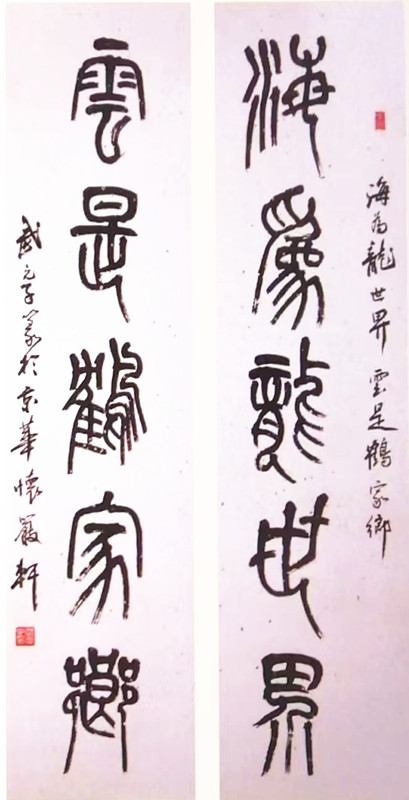 海為龍世界 雲是鶴家鄉
海為龍世界
雲是鶴家鄉
篆於京華懷軒